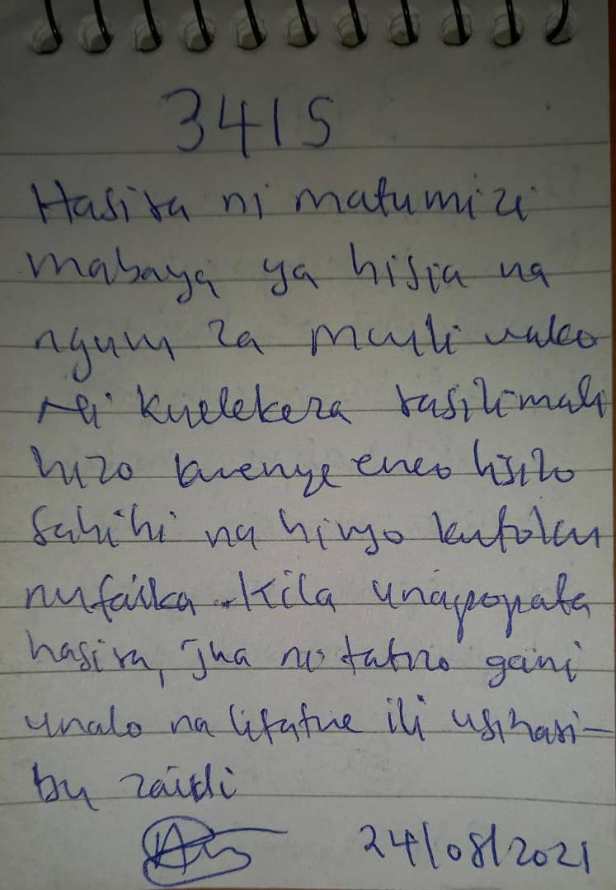 3415
Hasira ni matumizi
mabaya ya hisia na
nguvu za mwili wako
ni kuelekeza rasilimali
hizo kwenye eneo lisilo
sahihi na hivyo kutoku
nufaika. Kila unapopata
hasira, jua ni tatizo gani
unalo na litatue ili usihari-
bu zaidi
24/08/2021